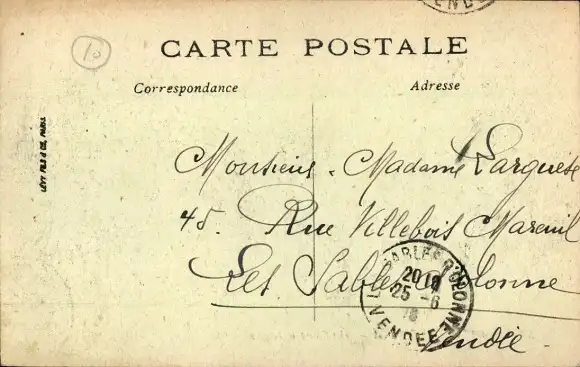 VENDÉE
10
CARTE POSTALE
Correspondance
Adresse
LÉVY FILS & CIE, PARIS
Monsieur, Madame Larguèse
45. Rue Villebois Mareuil
Les Sables d'Olonne
Vendée
LES SABLES D'OLONNE
25 -6
VENDÉE